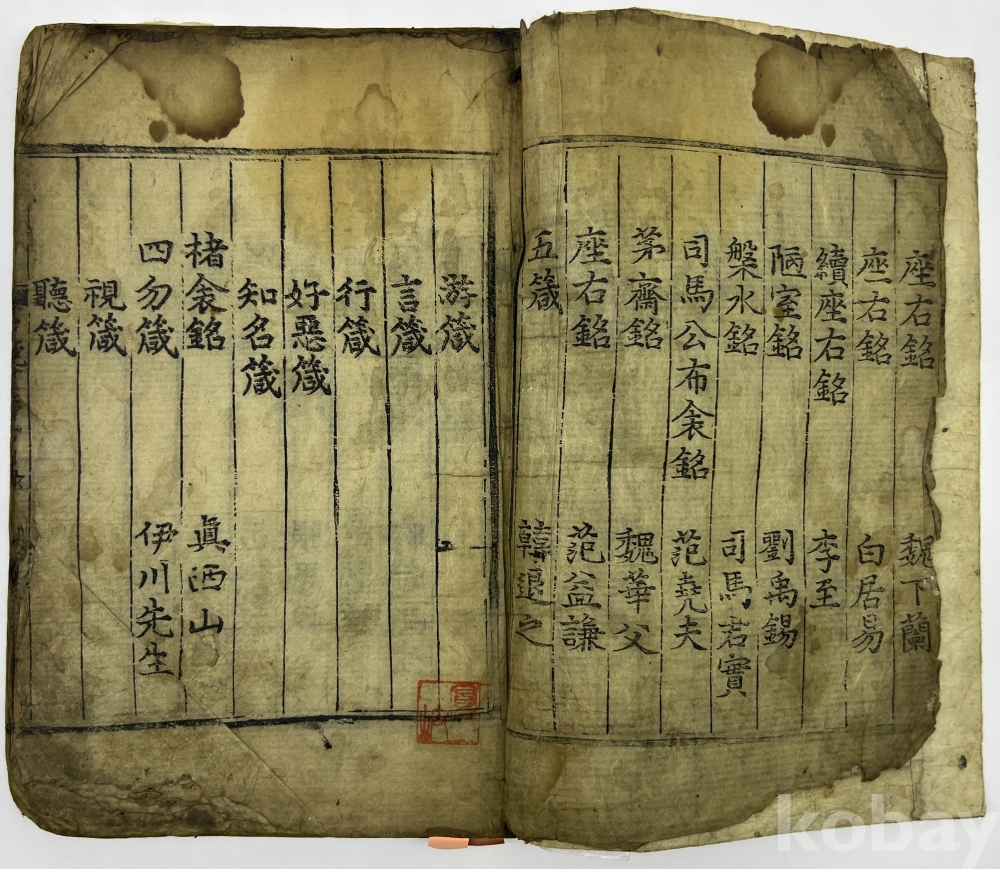 座右銘 魏下蘭
座右銘 白居易
續座右銘 李至
陋室銘 劉禹錫
槃水銘 司馬君實
司馬公布衾銘 范堯夫
茅齋銘 魏華父
座右銘 范益謙
五箴 韓退之
游箴
言箴
行箴
好惡箴
知名箴
楮衾銘 眞西山
四勿箴 伊川先生
視箴
聽箴
kobay